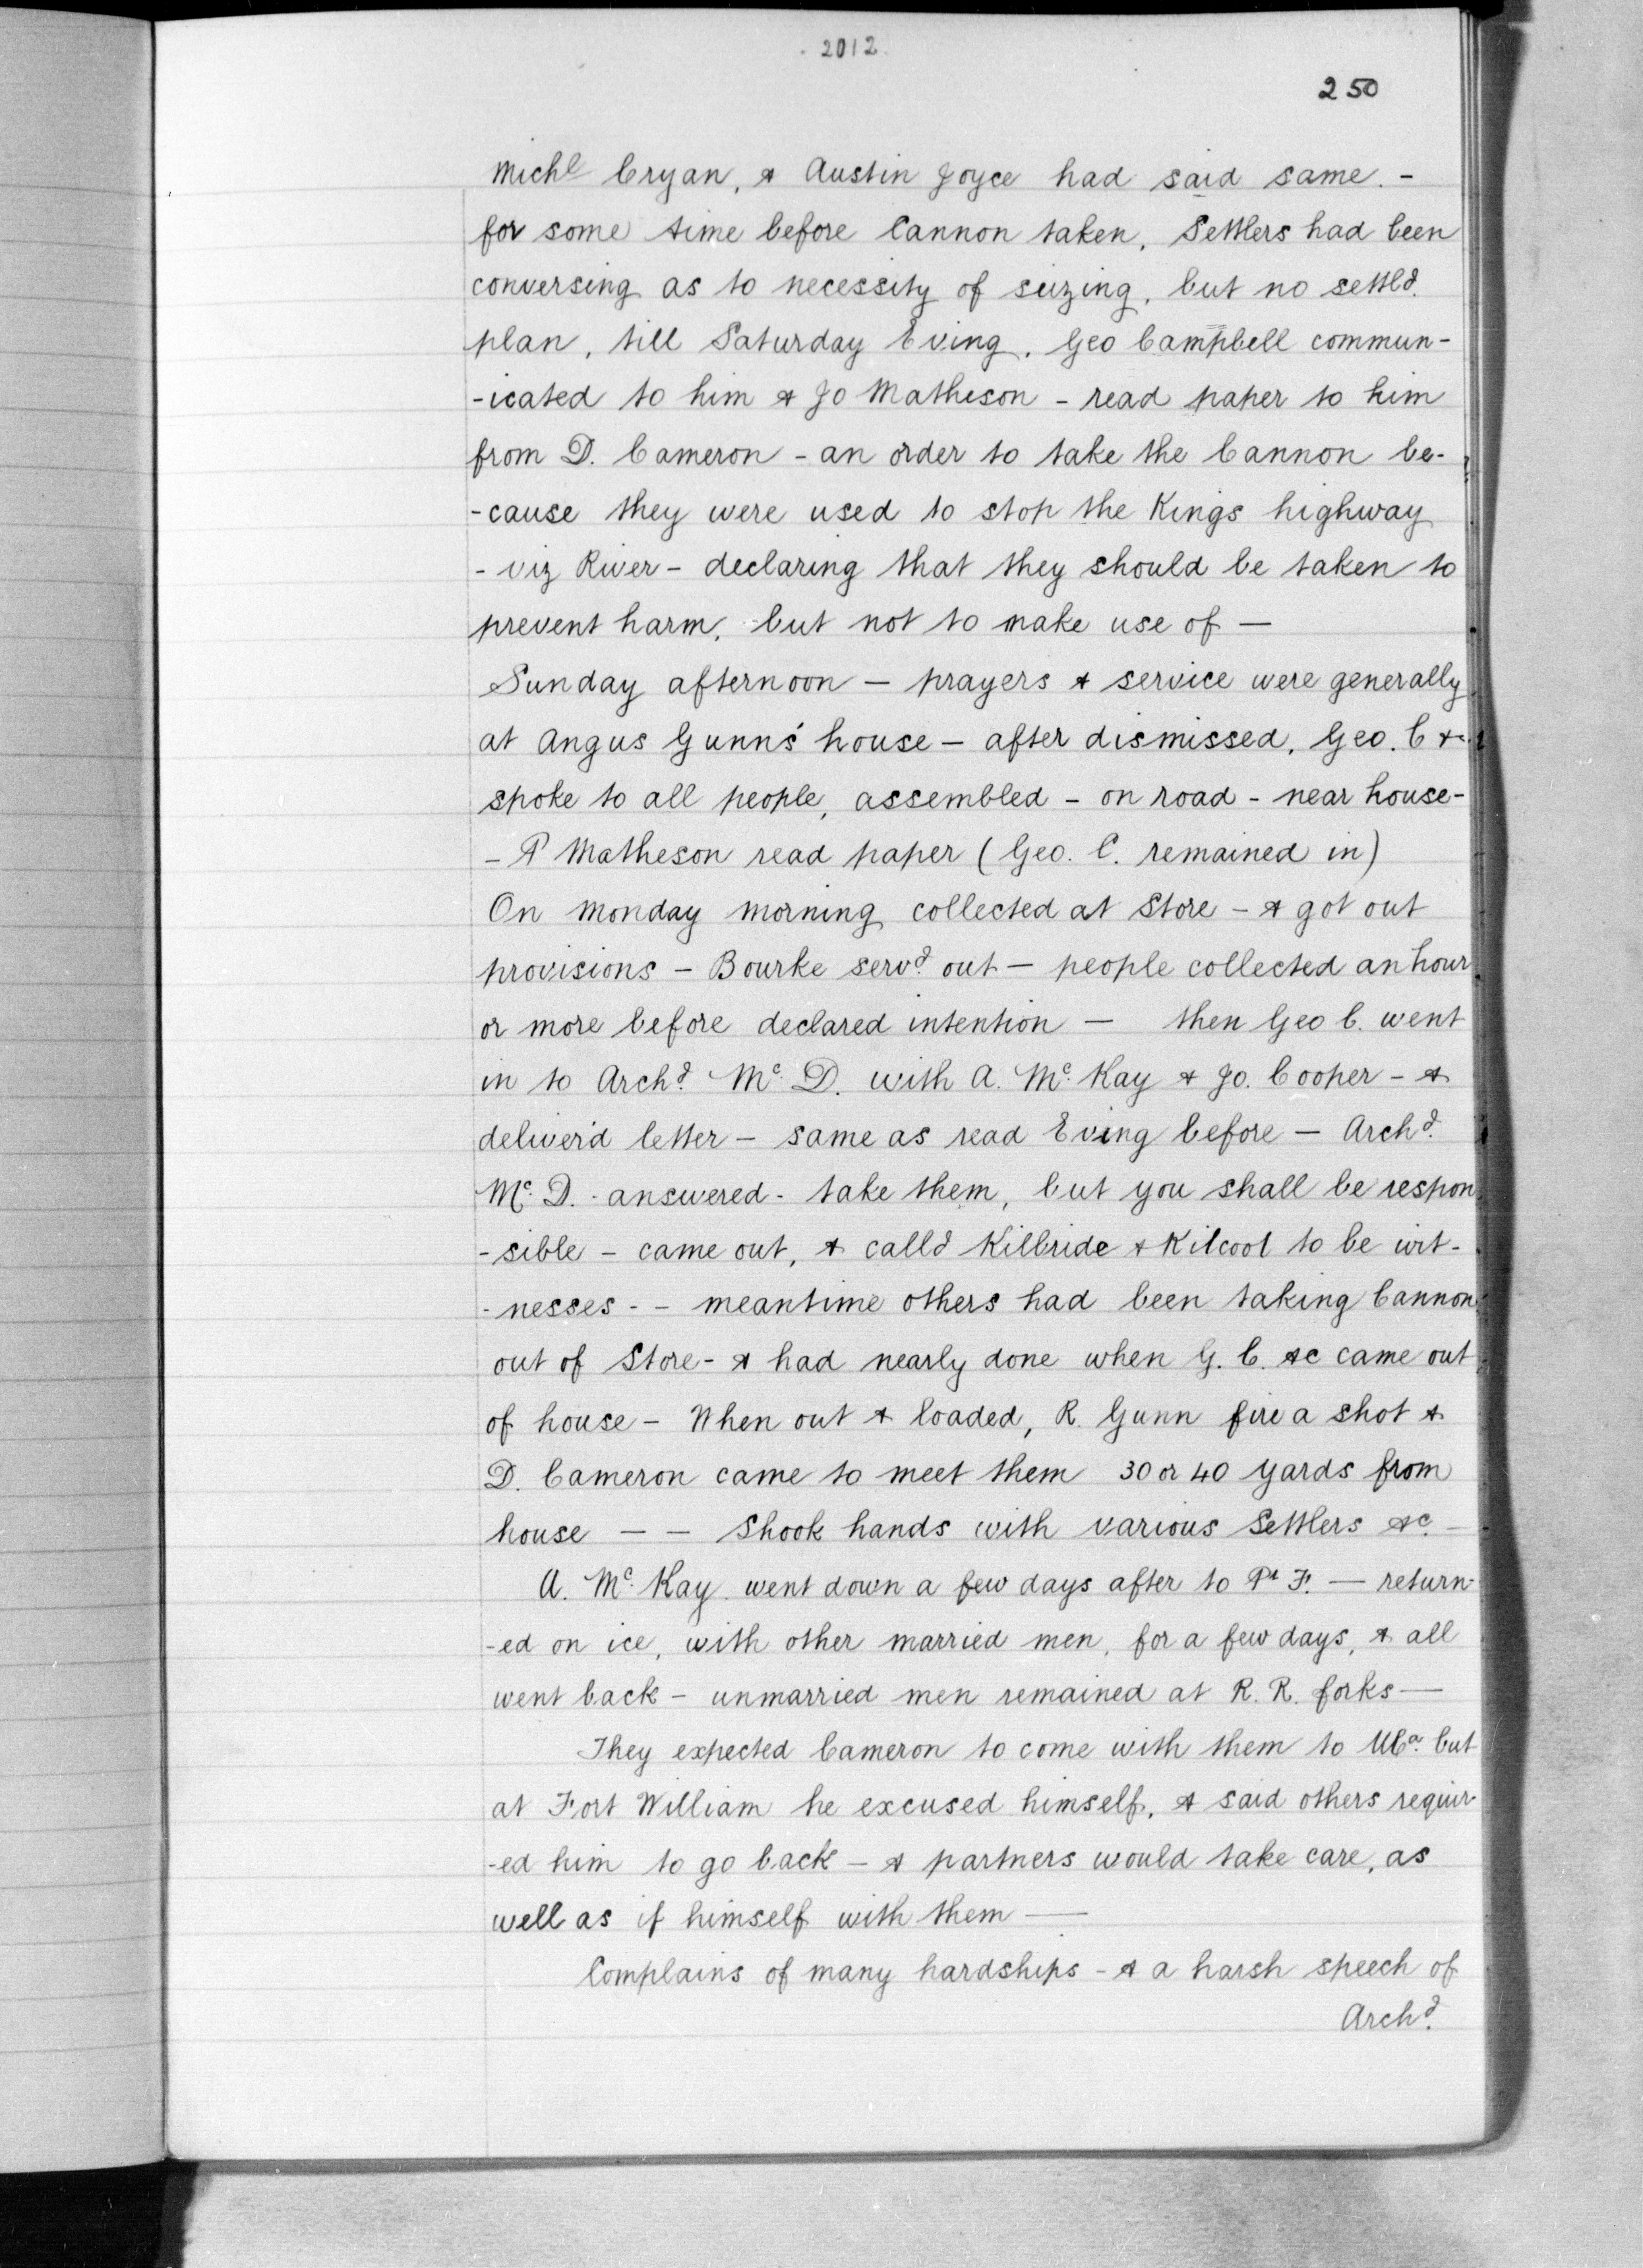 2012
250
Michl Cryan, & Austin Joyce had said same. -
for some time before Cannon taken, Settlers had been
conversing as to necessity of seizing, but no settld.
plan, till Saturday Eving. Geo Campbell commun-
-icated to him & Jo Matheson - read paper to him
from D. Cameron - an order to take the Cannon be-
-cause they were used to stop the Kings highway
- viz River - declaring that they should be taken to
prevent harm, but not to make use of —
Sunday afternoon — prayers & service were generally
at Angus Gunns' house — after dismissed, Geo. C &
spoke to all people, assembled - on road - near house -
- P Matheson read paper (Geo. C. remained in)
On Monday morning collected at Store - & got out
provisions - Bourke servd. out — people collected an hour
or more before declared intention — then Geo C. went
in to Archd. Mc. D. with A. Mc. Kay & Jo. Cooper - &
deliver'd letter — same as read Eving before — Archd.
Mc. D. - answered - take them, but you shall be respon
-sible - came out, & calld Kilbride & Kilcool to be wit-
-nesses - - meantime others had been taking Cannon
out of Store - & had nearly done when G. C. &c came out
of house - When out & loaded, R. Gunn fire a shot &
D. Cameron came to meet them 30 or 40 yards from
house — — Shook hands with various Settlers &c. —
A. Mc. Kay went down a few days after to Pt F. — return-
-ed on ice, with other married men, for a few days, & all
went back - unmarried men remained at R. R. forks —
They expected Cameron to come with them to UCa. but
at Fort William he excused himself, & said others requir-
-ed him to go back — & partners would take care, as
well as if himself with them —
Complains of many hardships - & a harsh speech of
Archd.